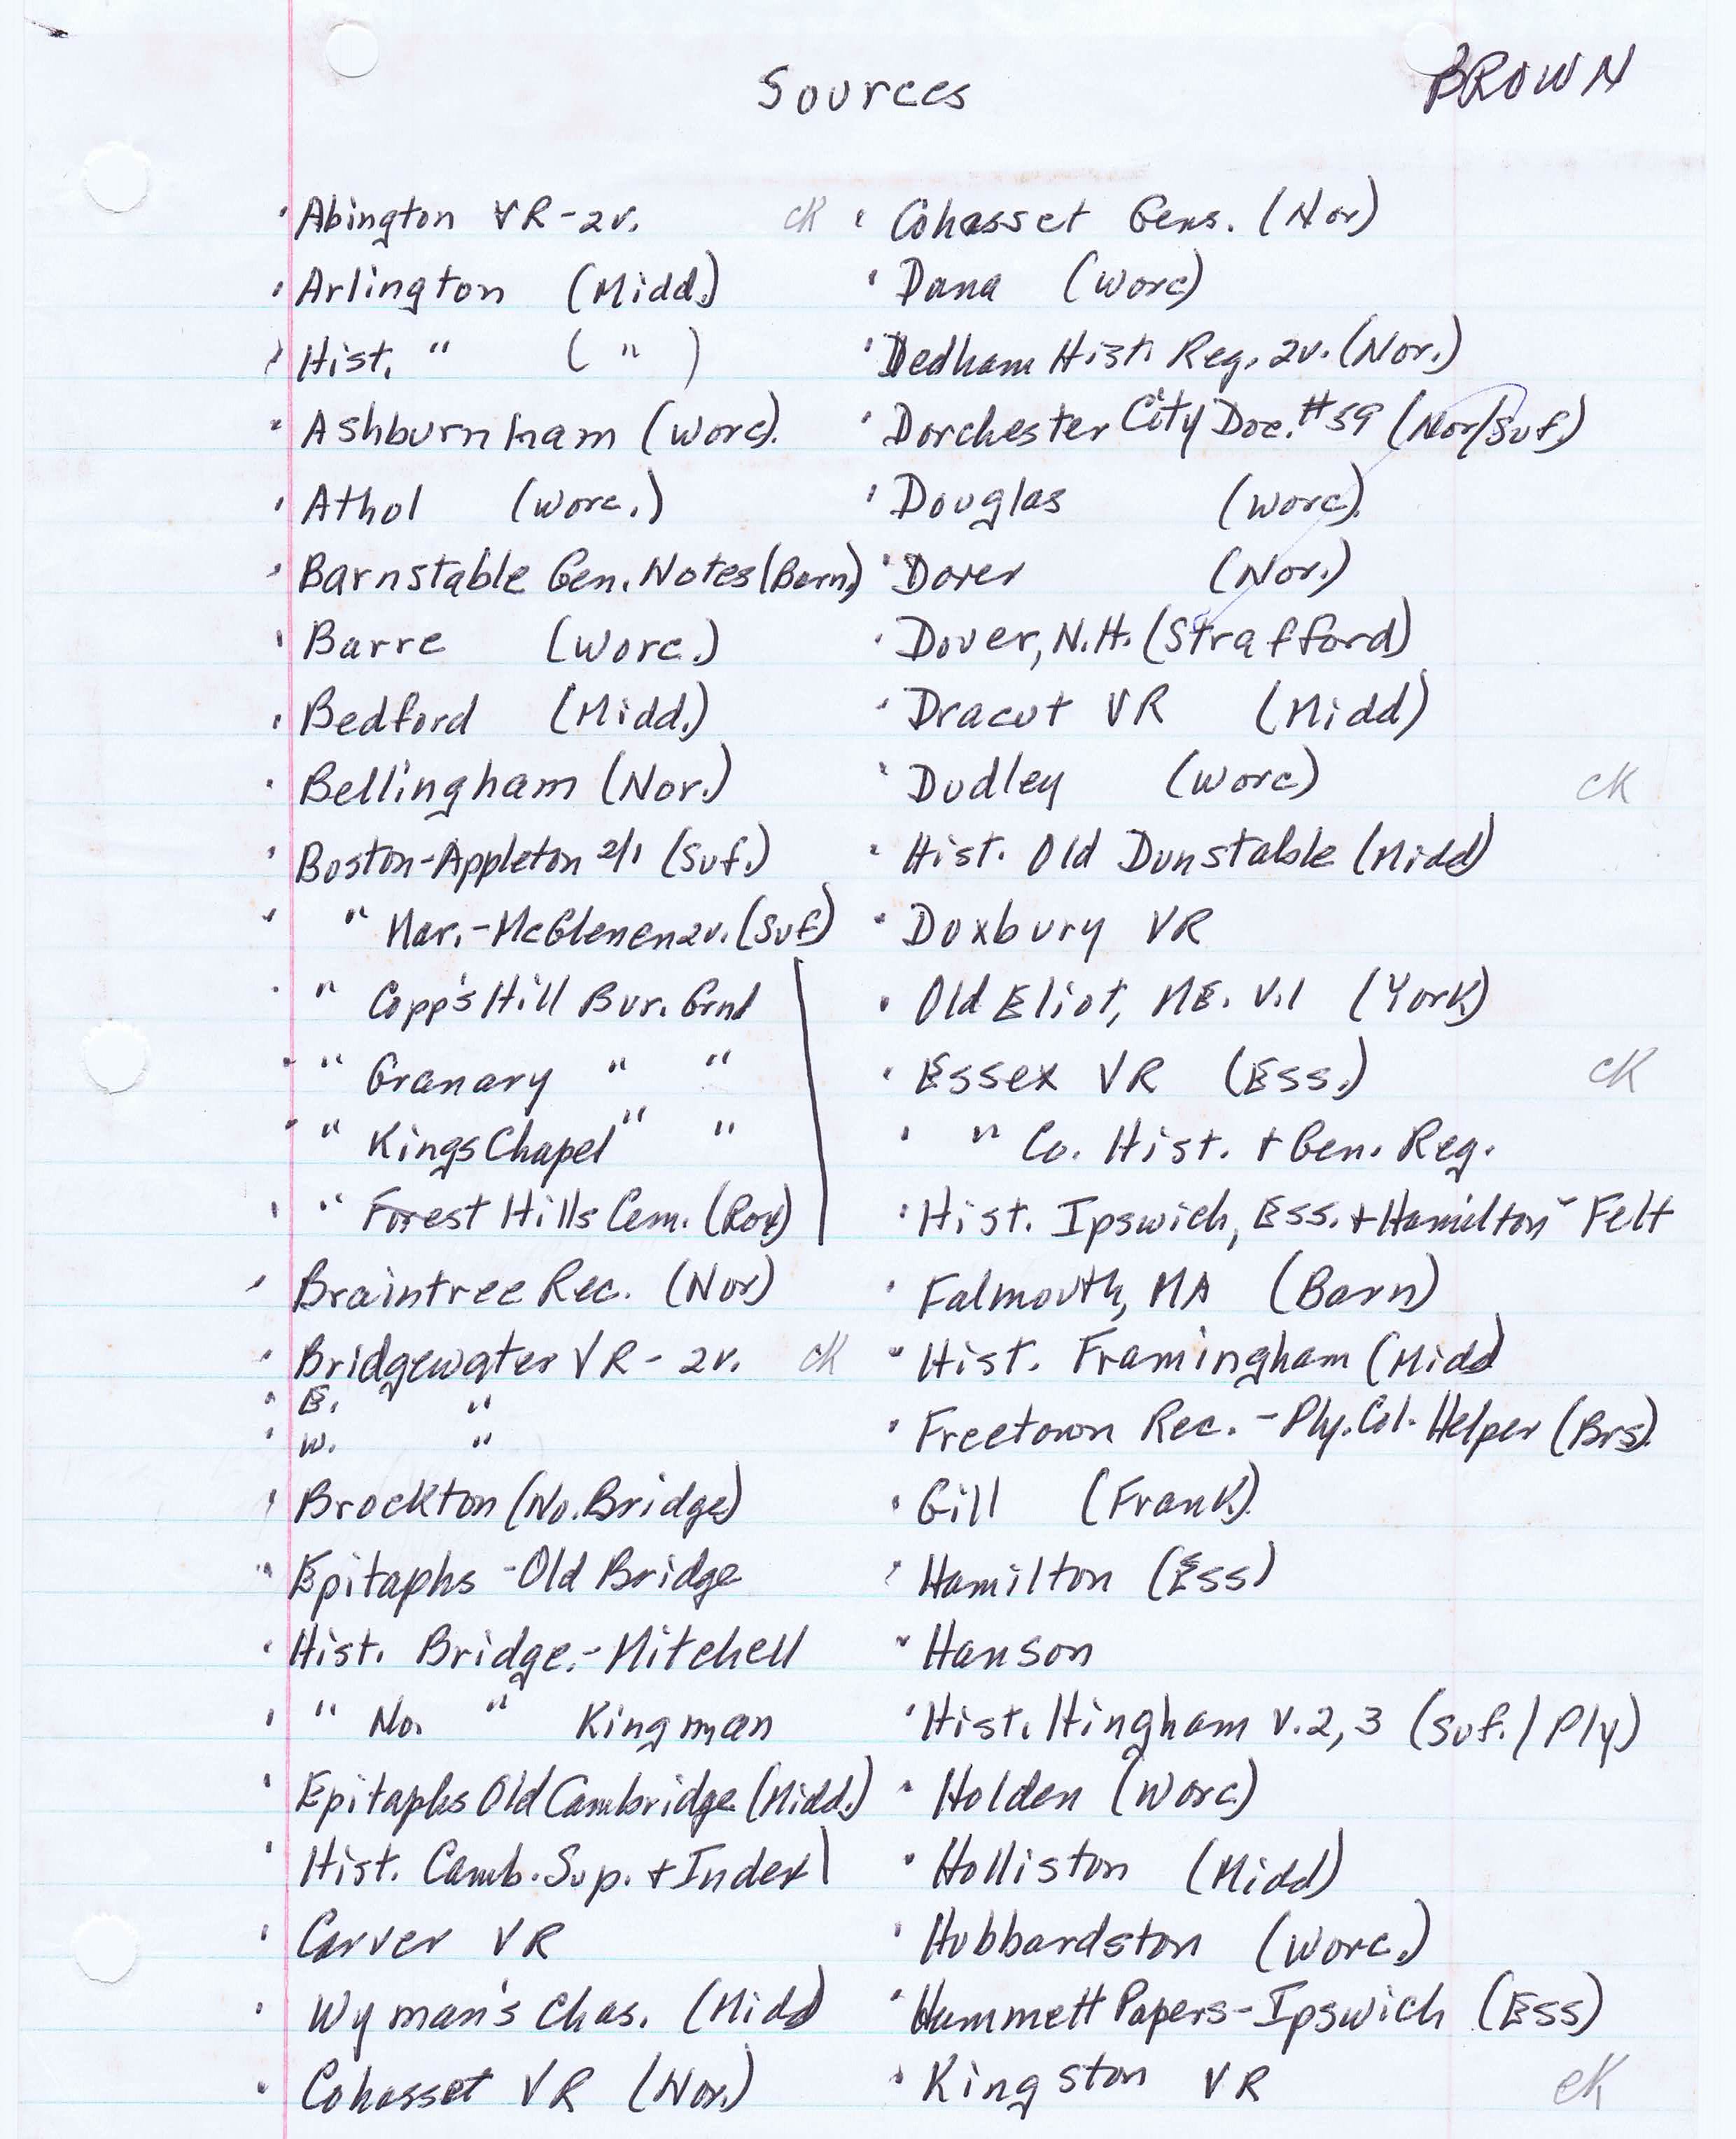 Sources
BROWN
Abington VR-2v. ck
Arlington (Midd.)
Hist. " ( " )
Ashburnham (Worc).
Athol (Worc.)
Barnstable Gen. Notes (Barn.)
Barre (Worc.)
Bedford (Midd.)
Bellingham (Nor.)
Boston-Appleton 2/1 (Suf.)
" Mar.-McGlenen 2v. (Suf)
" Copp's Hill Bur. Grnd
" Granary " "
" Kings Chapel " "
" Forest Hills Cem. (Rox)
Braintree Rec. (Nor)
Bridgewater VR-2v. ck
E. "
W. "
Brockton (No. Bridge)
Epitaphs - Old Bridge
Hist. Bridge.-Mitchell
" No. " Kingman
Epitaphs Old Cambridge (Midd.)
Hist. Camb. Sup. + Index
Carver VR
Wyman's Chas. (Midd)
Cohasset VR (Nor.)
Cohasset Gens. (Nor)
Dana (Worc)
Dedham Hist. Reg. 2v. (Nor.)
Dorchester City Doc. #59 (Nor/Suf.)
Douglas (Worc).
Dover (Nor.)
Dover, N.H. (Strafford)
Dracut VR (Midd)
Dudley (Worc) ck
Hist. Old Dunstable (Midd)
Duxbury VR
Old Eliot, ME. V.1 (York)
Essex VR (Ess.) ck
" Co. Hist. + Gen. Reg.
Hist. Ipswich, Ess. + Hamilton - Felt
Falmouth, MA (Barn)
Hist. Framingham (Midd
Freetown Rec. - Ply. Col. Helper (Brs).
Gill (Frank).
Hamilton (Ess)
Hanson
Hist. Hingham V.2,3 (Suf./Ply)
Holden (Worc)
Holliston (Midd)
Hubbardston (Worc.)
Hammett Papers-Ipswich (Ess)
Kingston VR ck